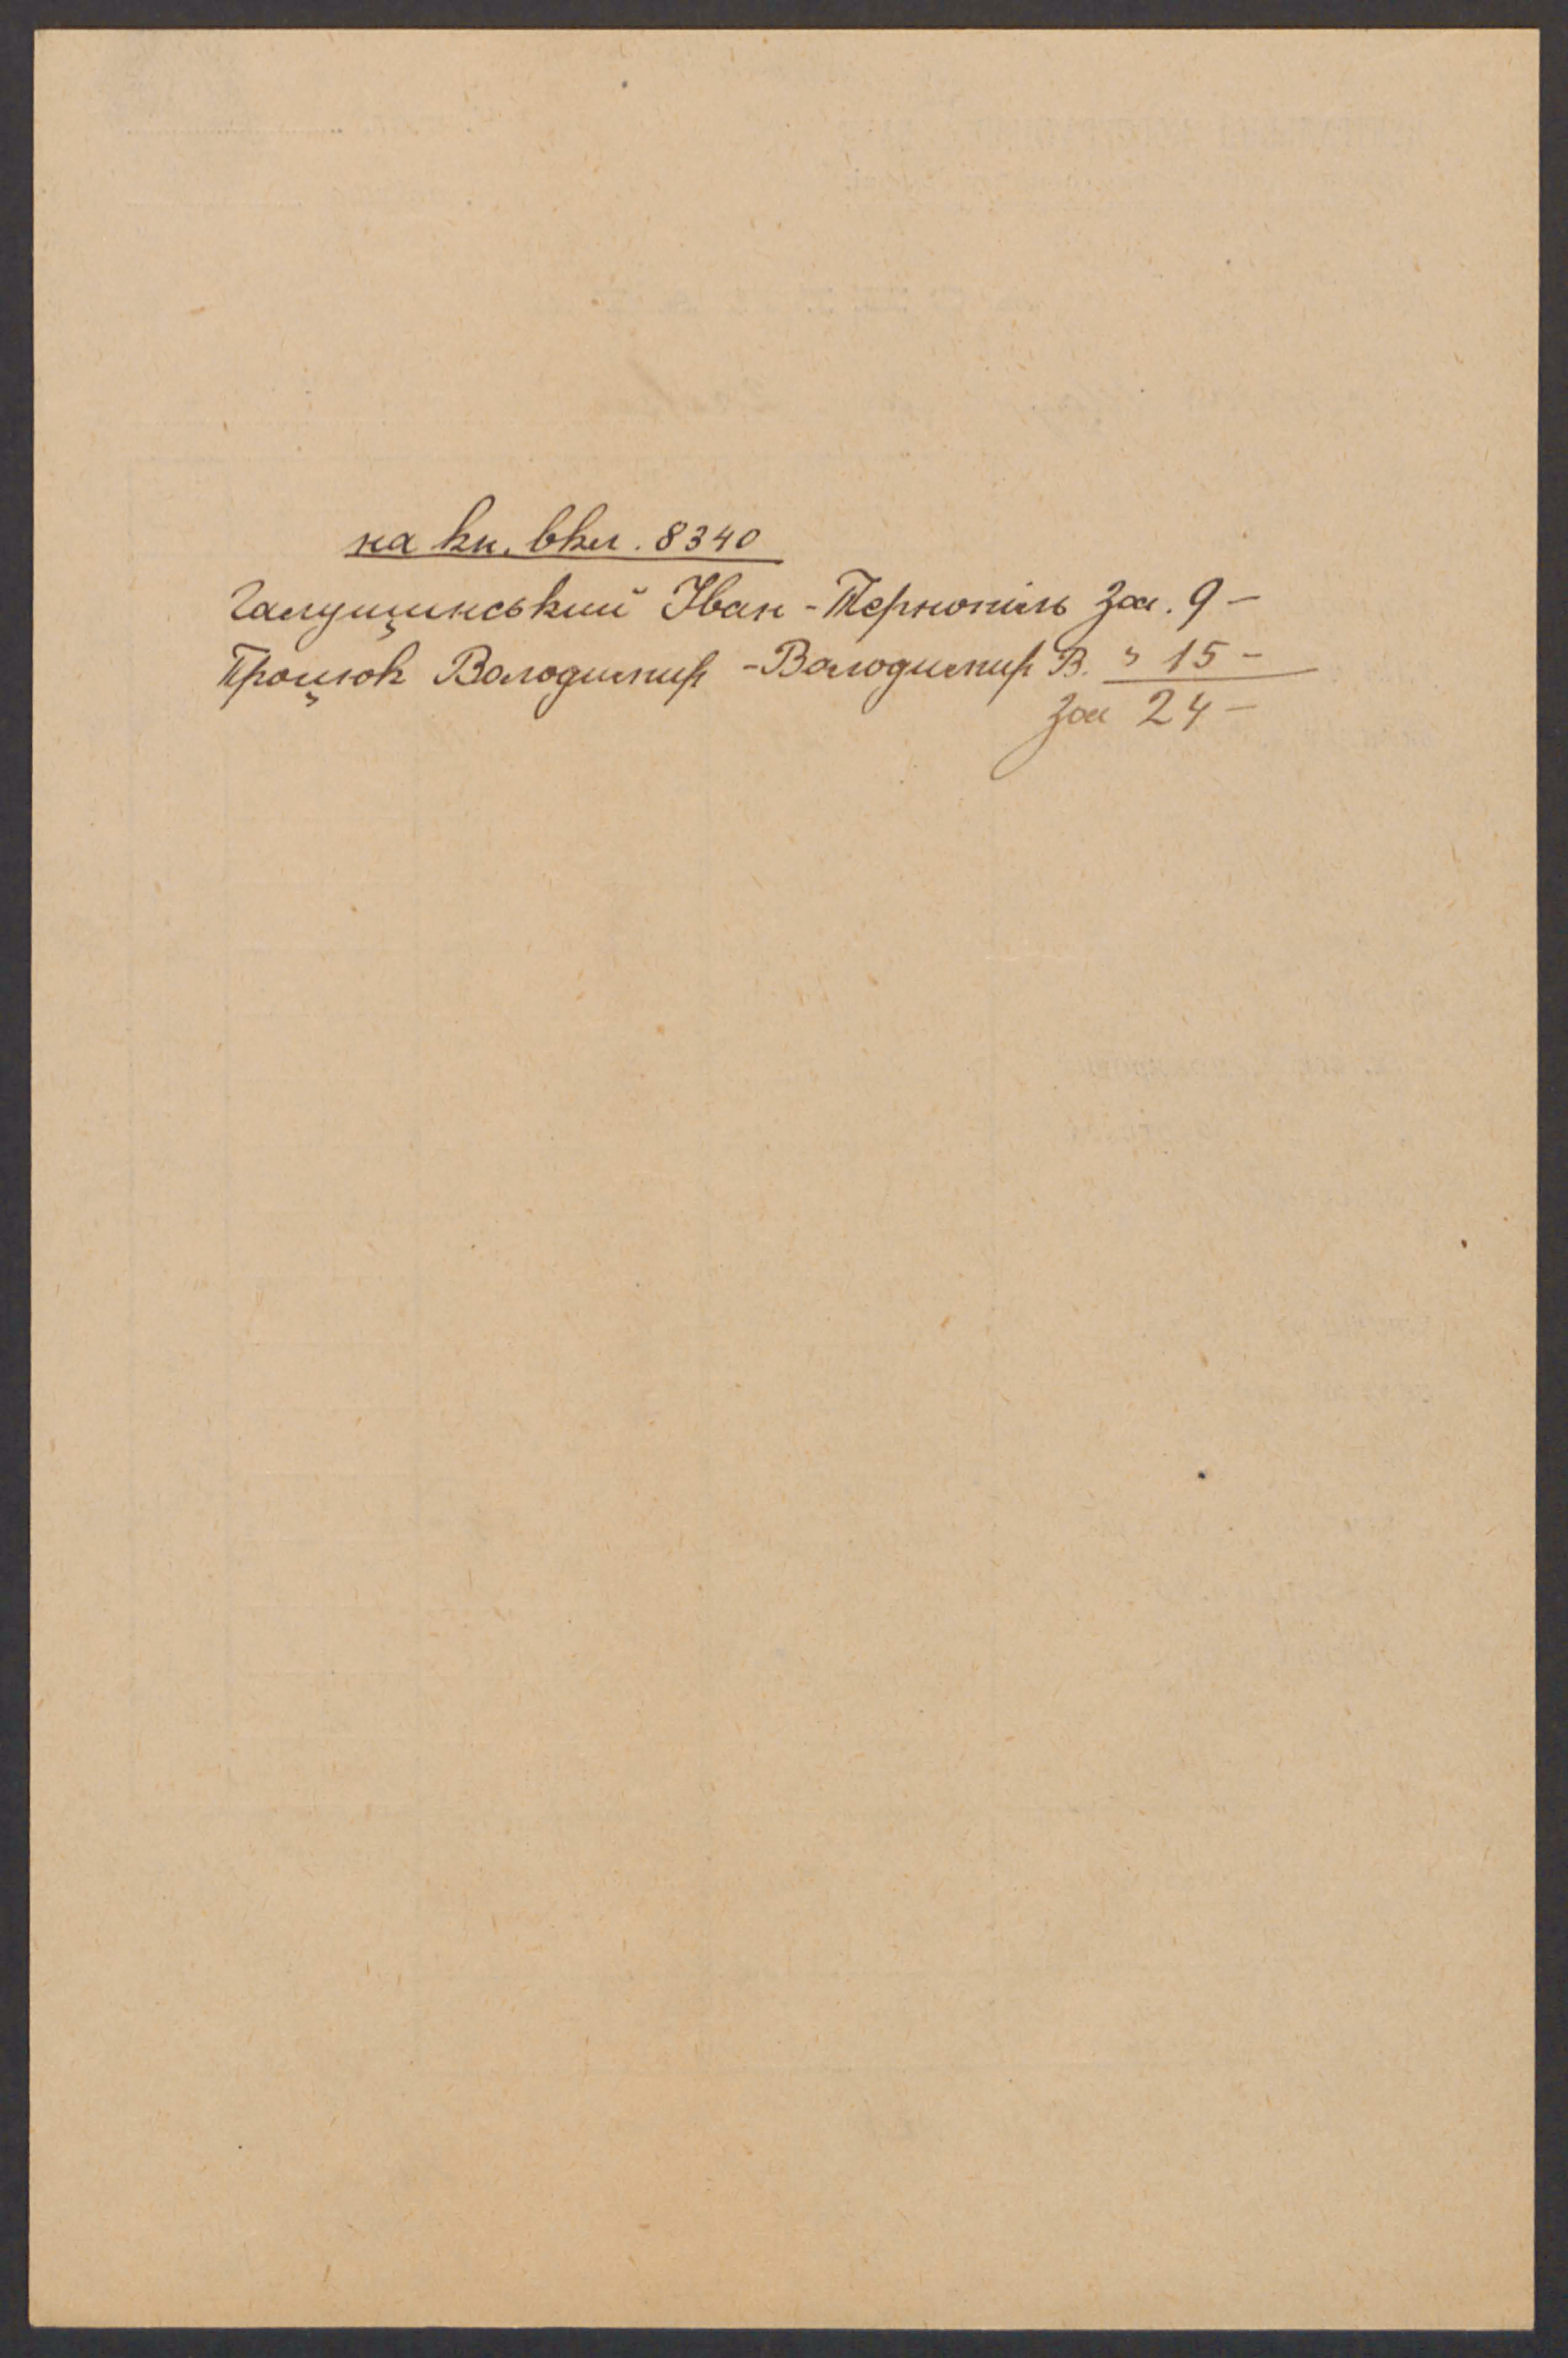 на кн. вкл. 8340
Галущинський Іван - Тернопіль Зол. 9 -
Процюк Володимир - Володимир В. " 15 -
Зол 24 -